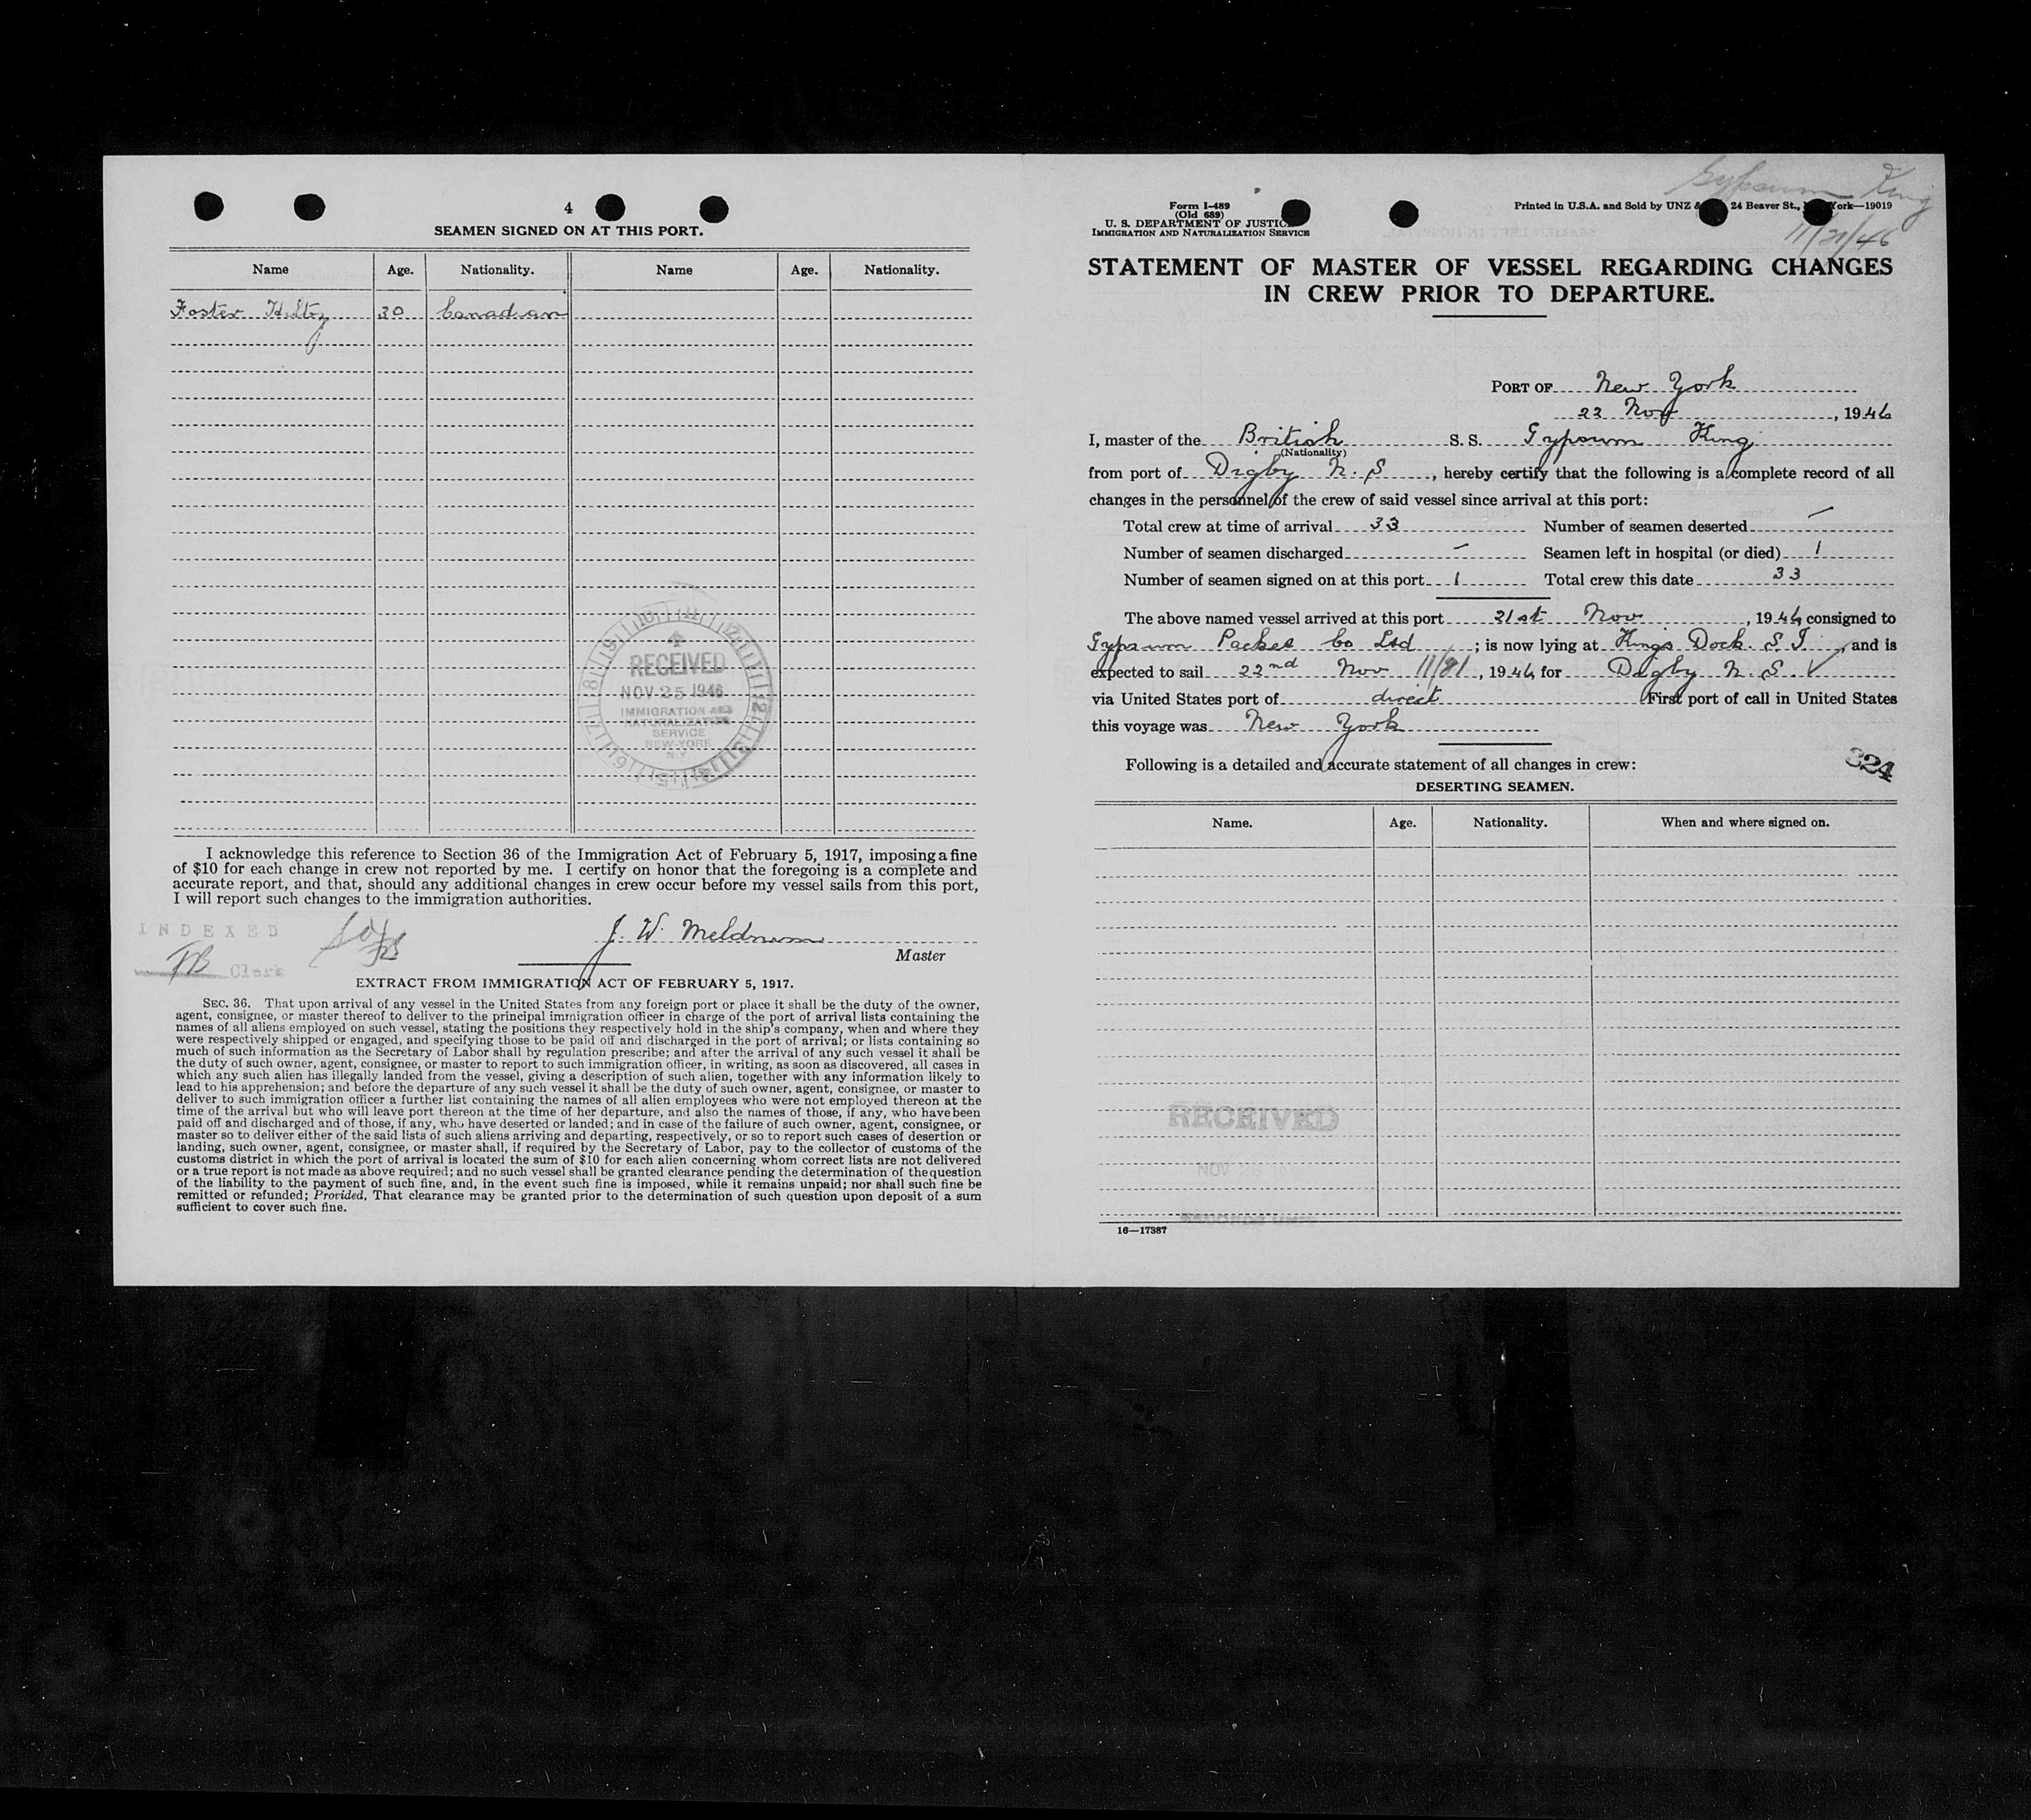 4
SEAMEN SIGNED ON AT THIS PORT.
Name Age. Nationality. Name Age. Nationality.
Foster Hiltz 30 Canadian
RECEIVED
NOV 25 1946
IMMIGRATION AND
NATURALIZATION
SERVICE
NEW-YORK
N.Y.
I acknowledge this reference to Section 36 of the Immigration Act of February 5, 1917, imposing a fine
of $10 for each change in crew not reported by me. I certify on honor that the foregoing is a complete and
accurate report, and that, should any additional changes in crew occur before my vessel sails from this port,
I will report such changes to the immigration authorities.
INDEXED
J. W. Meldrum
Master
Clerk
EXTRACT FROM IMMIGRATION ACT OF FEBRUARY 5, 1917.
SEC. 36. That upon arrival of any vessel in the United States from any foreign port or place it shall be the duty of the owner,
agent, consignee, or master thereof to deliver to the principal immigration officer in charge of the port of arrival lists containing the
names of all aliens employed on such vessel, stating the positions they respectively hold in the ship's company, when and where they
were respectively shipped or engaged, and specifying those to be paid off and discharged in the port of arrival; or lists containing so
much of such information as the Secretary of Labor shall by regulation prescribe; and after the arrival of any such vessel it shall be
the duty of such owner, agent, consignee, or master to report to such immigration officer, in writing, as soon as discovered, all cases in
which any such alien has illegally landed from the vessel, giving a description of such alien, together with any information likely to
lead to his apprehension; and before the departure of any such vessel it shall be the duty of such owner, agent, consignee, or master to
deliver to such immigration officer a further list containing the names of all alien employees who were not employed thereon at the
time of the arrival but who will leave port thereon at the time of her departure, and also the names of those, if any, who have been
paid off and discharged and of those, if any, who have deserted or landed; and in case of the failure of such owner, agent, consignee, or
master so to deliver either of the said lists of such aliens arriving and departing, respectively, or so to report such cases of desertion or
landing, such owner, agent, consignee, or master shall, if required by the Secretary of Labor, pay to the collector of customs of the
customs district in which the port of arrival is located the sum of $10 for each alien concerning whom correct lists are not delivered
or a true report is not made as above required; and no such vessel shall be granted clearance pending the determination of the question
of the liability to the payment of such fine, and, in the event such fine is imposed, while it remains unpaid; nor shall such fine be
remitted or refunded; Provided, That clearance may be granted prior to the determination of such question upon deposit of a sum
sufficient to cover such fine.
Gypsum King
11/21/46
Form I-489
(Old 689)
U. S. DEPARTMENT OF JUSTICE
IMMIGRATION AND NATURALIZATION SERVICE
Printed in U.S.A. and Sold by UNZ & 24 Beaver St., York—19019
STATEMENT OF MASTER OF VESSEL REGARDING CHANGES
IN CREW PRIOR TO DEPARTURE.
PORT OF New York
22 Nov, 1946
I, master of the British S. S. Gypsum King
(Nationality)
from port of Digby N. S, hereby certify that the following is a complete record of all
changes in the personnel of the crew of said vessel since arrival at this port:
Total crew at time of arrival 33 Number of seamen deserted —
Number of seamen discharged — Seamen left in hospital (or died) 1
Number of seamen signed on at this port 1 Total crew this date 33
The above named vessel arrived at this port 21st Nov, 1946 consigned to
Gypsum Packet Co Ltd; is now lying at Kings Dock. S. I., and is
expected to sail 22nd Nov, 1946 for Digby N. S.
via United States port of direct First port of call in United States
this voyage was New York
Following is a detailed and accurate statement of all changes in crew:
324
DESERTING SEAMEN.
Name. Age. Nationality. When and where signed on.
RECEIVED
NOV
16—17387